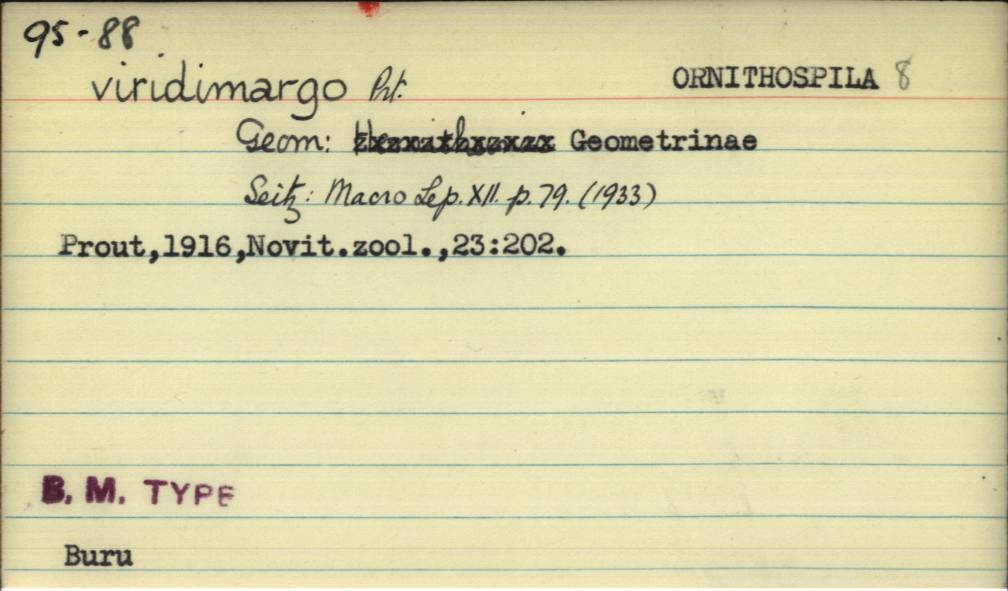 95-88
viridimargo Prt. ORNITHOSPILA 8
Geom: Geometrinae
Seitz: Macro Lep. XII. p. 79. (1933)
Prout,1916,Novit.zool.,23:202.
B. M. TYPE
Buru